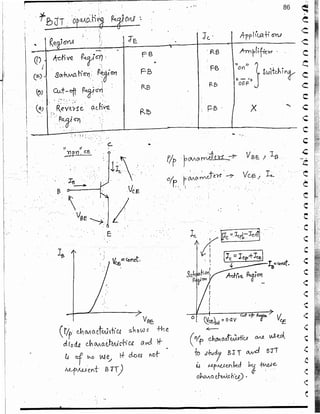 86
* BJT operating Regions :
Regions | JE | JC | Applications
(1) Active Region | FB | RB | Amplifier
(2) Saturation Region | FB | FB | "on"
(3) Cut-off Region | RB | RB | "OFF"
} Switching
(4) Reverse active Region | RB | FB | X
"npn" CE
C
IC
IB
B
VCE
VBE
E
i/p parameters → VBE , IB
o/p parameters → VCE , IC
IB
VCE = const.
VBE
(i/p characteristics shows the
diode characteristics and it
is of no use, it does not
represent BJT)
IC
IB = const.
Saturation Region
Active Region
Cut off Region
0
VCE
(o/p characteristics are used,
to study BJT and BJT
is represented by these
characteristics).